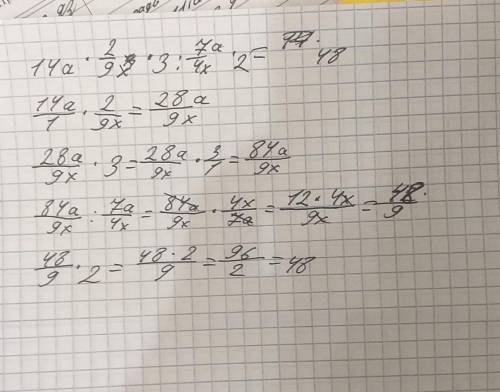 14a · 2/9x · 3 : 7a/4x · 2 = 48
14a/1 · 2/9x = 28a/9x
28a/9x · 3 = 28a/9x · 3/1 = 84a/9x
84a/9x : 7a/4x = 84a/9x · 4x/7a = 12 · 4x/9x = 48/9
48/9 · 2 = 48 · 2/9 = 96/2 = 48